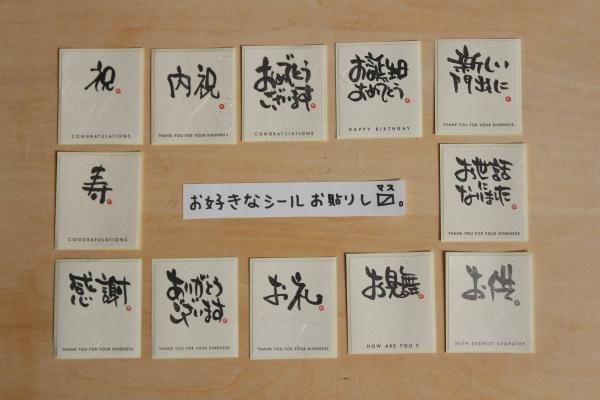 祝
CONGRATULATIONS
内祝
THANK YOU FOR YOUR KINDNESS
おめでとう
ございます
CONGRATULATIONS
お誕生日
おめでとう
HAPPY BIRTHDAY
新しい
門出に
THANK YOU FOR YOUR KINDNESS
寿
CONGRATULATIONS
マス
お好きなシール お貼りし〼。
お世話に
なりました
THANK YOU FOR YOUR KINDNESS
感謝
THANK YOU FOR YOUR KINDNESS
ありがとう
ございます
THANK YOU FOR YOUR KINDNESS
お礼
THANK YOU FOR YOUR KINDNESS
お見舞
HOW ARE YOU ?
お供
WITH DEEPEST SYMPATHY